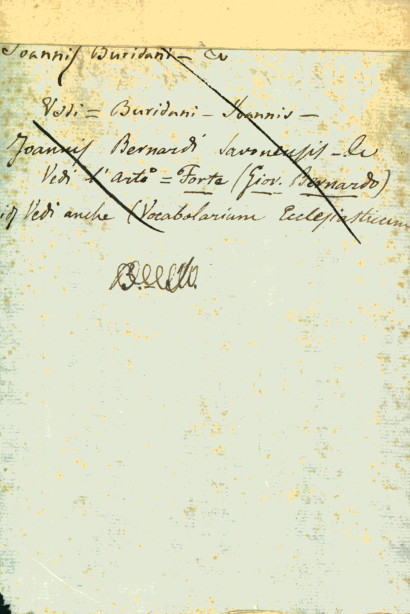 Joannis Buridani -
Vedi = Buridani - Joannis -
Joannis Bernardi Savonensis -
Vedi l'Arto = Forte (Giov. Bernardo)
Vedi anche (Vocabolarium Ecclesiasticum